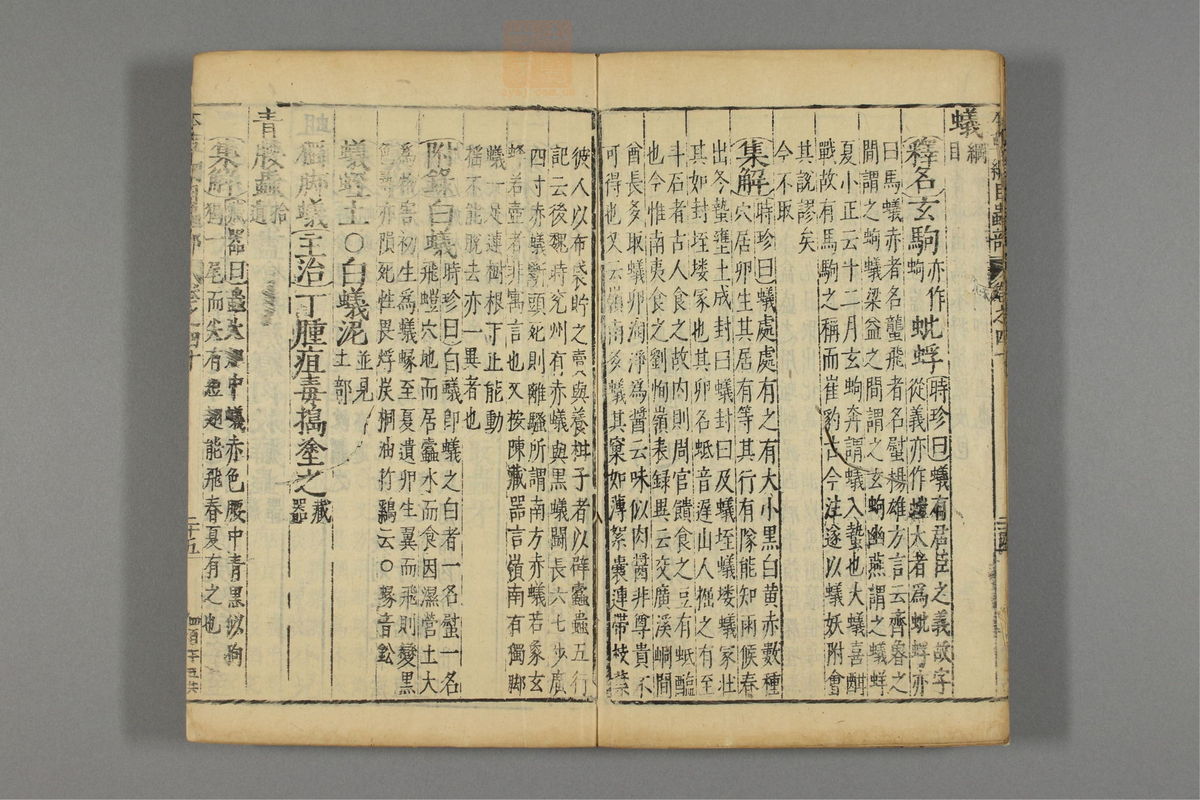 蟻綱目
釋名玄駒亦作蚼蚍蜉時珍曰蟻有君臣之義故字
從義亦作螘大者為蚍蜉亦
曰馬蟻赤者名蠪飛者名螱楊雄方言云齊魯之
間謂之蚼蟻梁益之間謂之玄蚼幽燕謂之蟻蛘
夏小正云十二月玄蚼奔謂蟻入蟄也大蟻喜酣
戰故有馬駒之稱而崔豹古今注遂以蟻妖附會
其說謬矣
今不取
集解時珍曰蟻處處有之有大小黑白黄赤數種
穴居卵生其居有等其行有隊能知雨候春
出冬蟄壅土成封曰封曰及蟻垤蟻塿蟻冢壯
其如封垤塿冢也其卵名蚳音遲山人掘之有至
斗石者古人食之故內則周官饋食之豆有蚳醢
也今惟南夷食之劉恂嶺表録異云交廣溪峒間
酋長多取蟻卵淘淨為醬云味似肉醬非尊貴不
可得也又云嶺南多蟻其窠如薄絮囊連帶枝葉
彼人以布袋貯之賣與養柑子者以辟蠹蟲五行
記云後魏時兗州有赤蟻與黑蟻鬭長六七步廣
四寸赤蟻斷頭死則離騷所謂南方赤蟻若象玄
蜂若壺者非寓言也又按陳藏器言嶺南有獨脚
蟻一足連樹根下止能動
摇不能脫去亦一異者也
附錄白蟻時珍曰白蟻即蟻之白者一名螱一名
飛螘穴地而居蠹水而食因濕營土大
為物害初生為蟻蝝至夏遺卵生翼而飛則變黑
色尋亦隕死性畏烰炭桐油竹鷄云○蝝音鈆
蟻垤土○白蟻泥並見土部
獨脚蟻主治丁腫疽毒搗塗之藏器
青腰蟲拾遺
集解藏器曰蟲大如中蟻赤色腰中青黑似狗
獨一尾而尖有短翅能飛春夏有之也